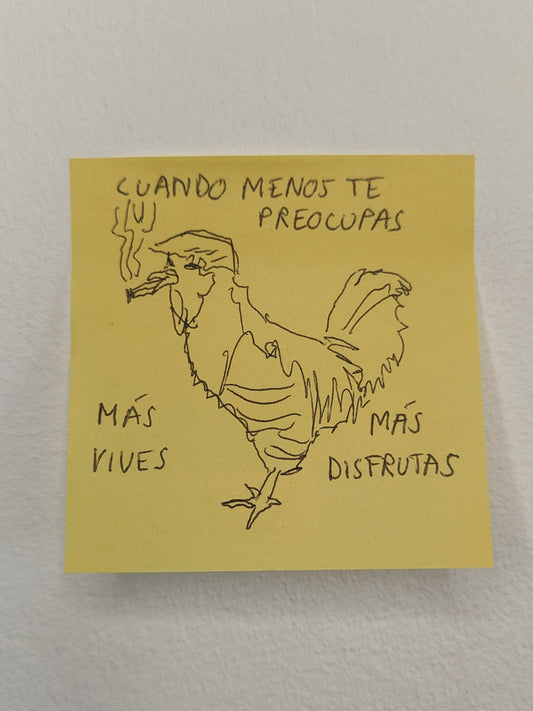 CUANDO MENOS TE
PREOCUPAS
MÁS
VIVES
MÁS
DISFRUTAS